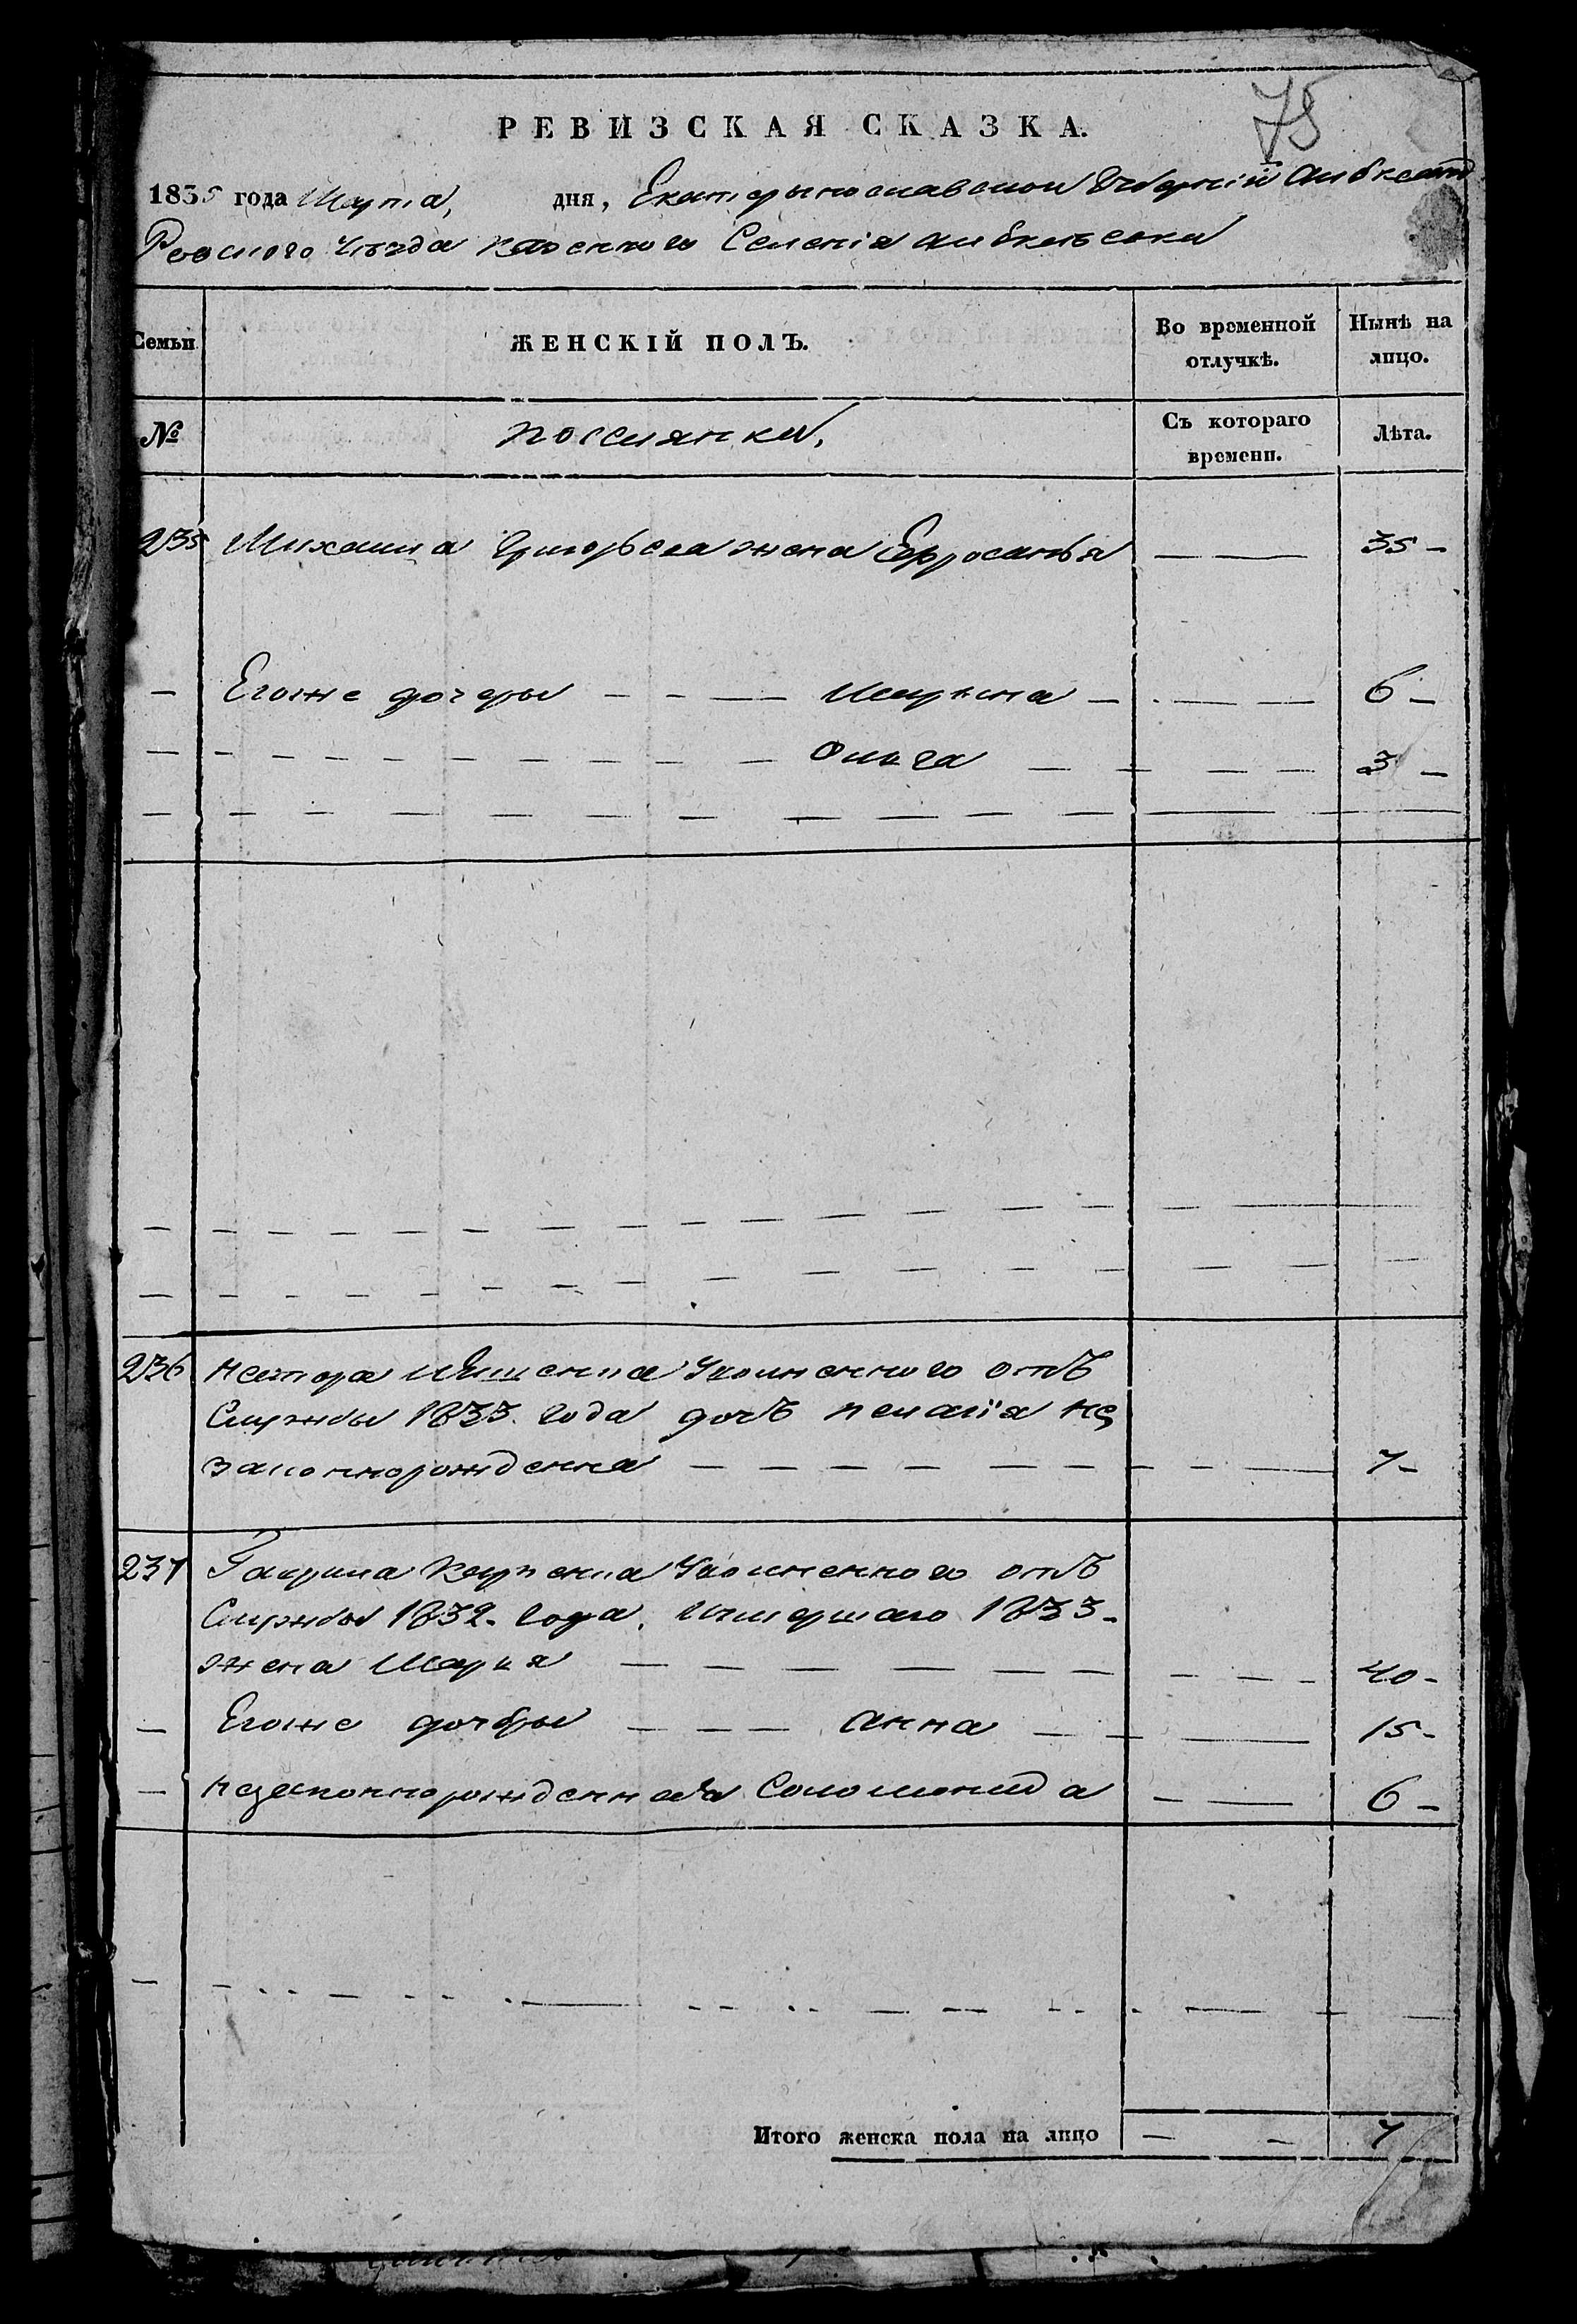 75
РЕВИЗСКАЯ СКАЗКА.
1835 года Марта, дня, Екатерынославской Губерніи Александ
Ровского Уезда казенного Селенія
Семьи
ЖЕНСКІЙ ПОЛЪ.
Во временной отлучкѣ.
Нынѣ на лицо.
№
поселянки,
Съ котораго времени.
Лѣта.
235 Михаила Григорьева жена Ефросинья — — 35 -
— Егоже дочеры — — — Марина — — — 6 -
— — — — — Ольга — — — 3 -
236 Нестора Ищенка Уволненного отъ
Службы 1833. года дочь Пелагія не
законнорожденна — — — — 7 -
237 Гаврила Карпенка Уволненного отъ
Службы 1832. года, Умершаго 1833 -
жена Марья — — — — 40 -
— Егоже дочеры — — — Анна — — 15 -
— незаконнорожденная Соломонида — — 6 -
Итого женска пола на лицо — — 7